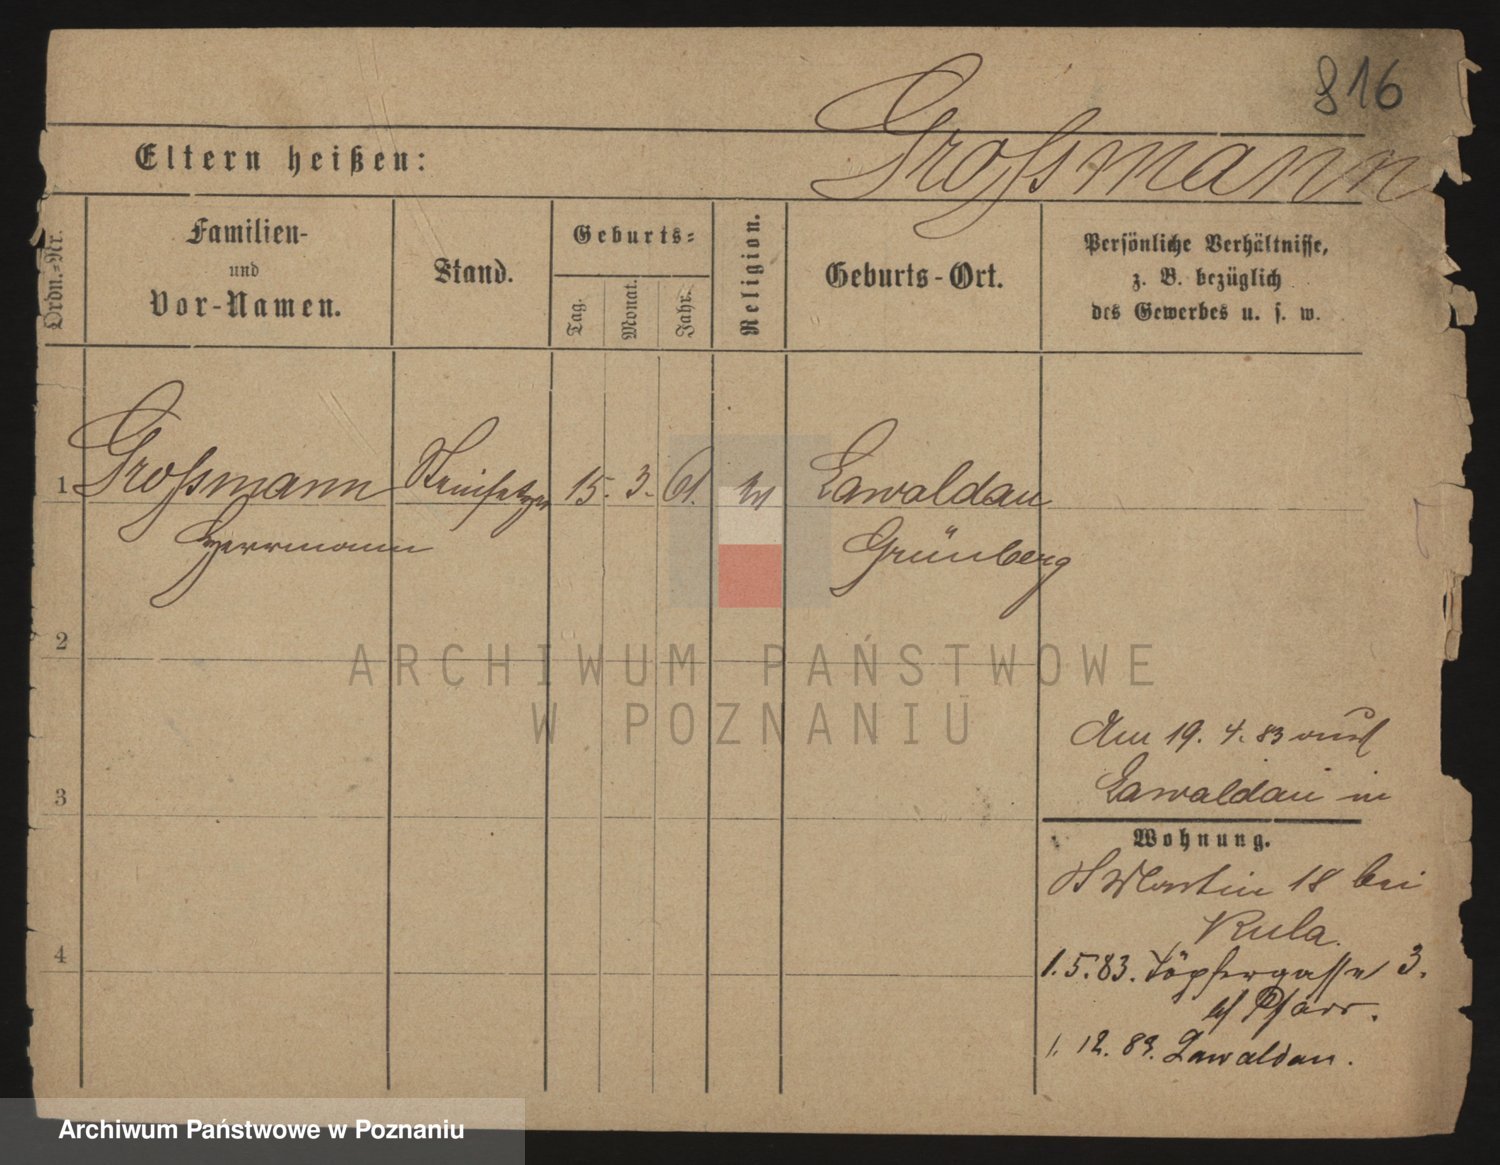 816
Großmann
Eltern heißen:
Ordn.-Nr.
Familien-
und
Vor-Namen.
Stand.
Geburts-
Tag.
Monat.
Jahr.
Religion.
Geburts-Ort.
Persönliche Verhältnisse,
z. B. bezüglich
des Gewerbes u. s. w.
1 Großmann Steinsetzer 15. 3. 61. ev Lawaldau
Herrmann Grünberg
2
ARCHIWUM PAŃSTWOWE
W POZNANIU
Am 19. 4. 83 aus
3
Lawaldau in
Wohnung.
St Martin 18 bei
Kula.
4
1.5.83. Töpfergasse 3.
Pfarr.
1. 12. 83. Lawaldau.
Archiwum Państwowe w Poznaniu